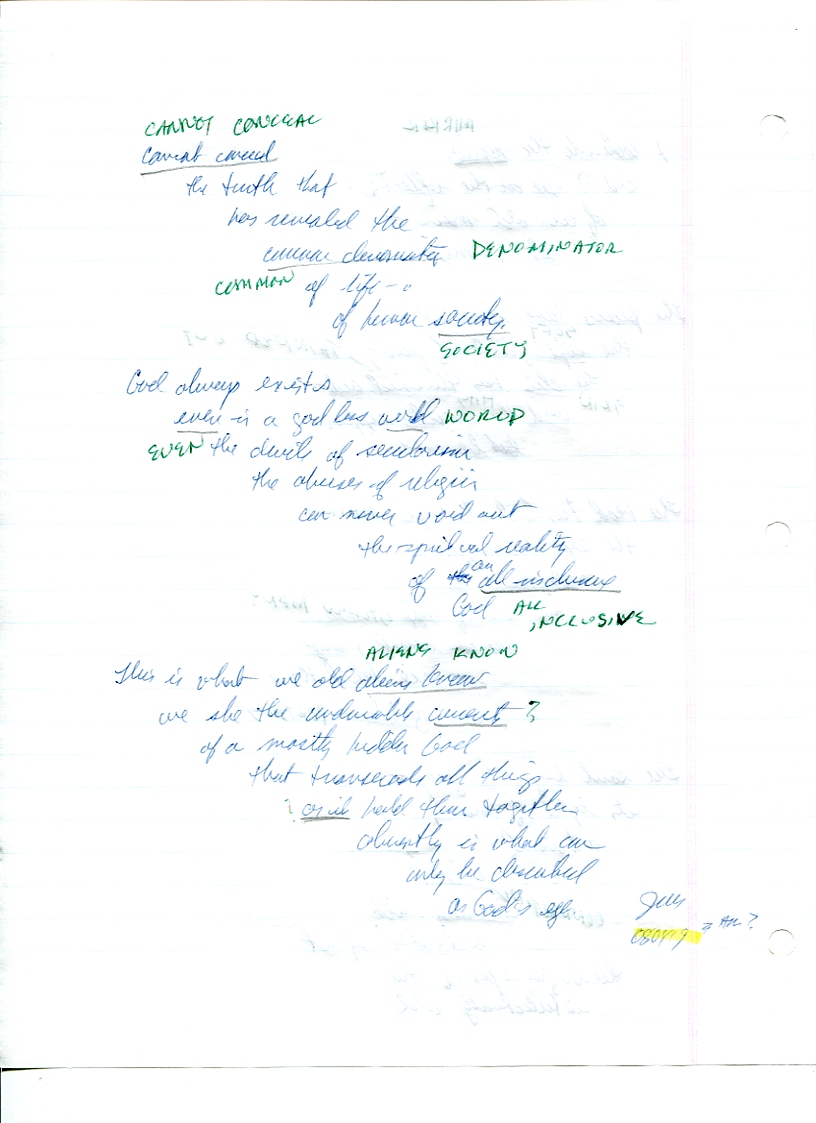 CANNOT CONCEAL
cannot conceal
the truth that
has revealed the
common denominator DENOMINATOR
COMMON of life -
of human society.
SOCIETY
God always exists
even in a godless world WORLD
EVEN the devils of secularism
the abuses of religion
can never void out
the spiritual reality
of the an all-inclusive
God ALL
INCLUSIVE
ALIENS KNOW
This is what we old aliens know
we the undeniable ?
of a mostly hidden God
that transcends all things
? held them together
is what can
only be described
as God's
? AM?